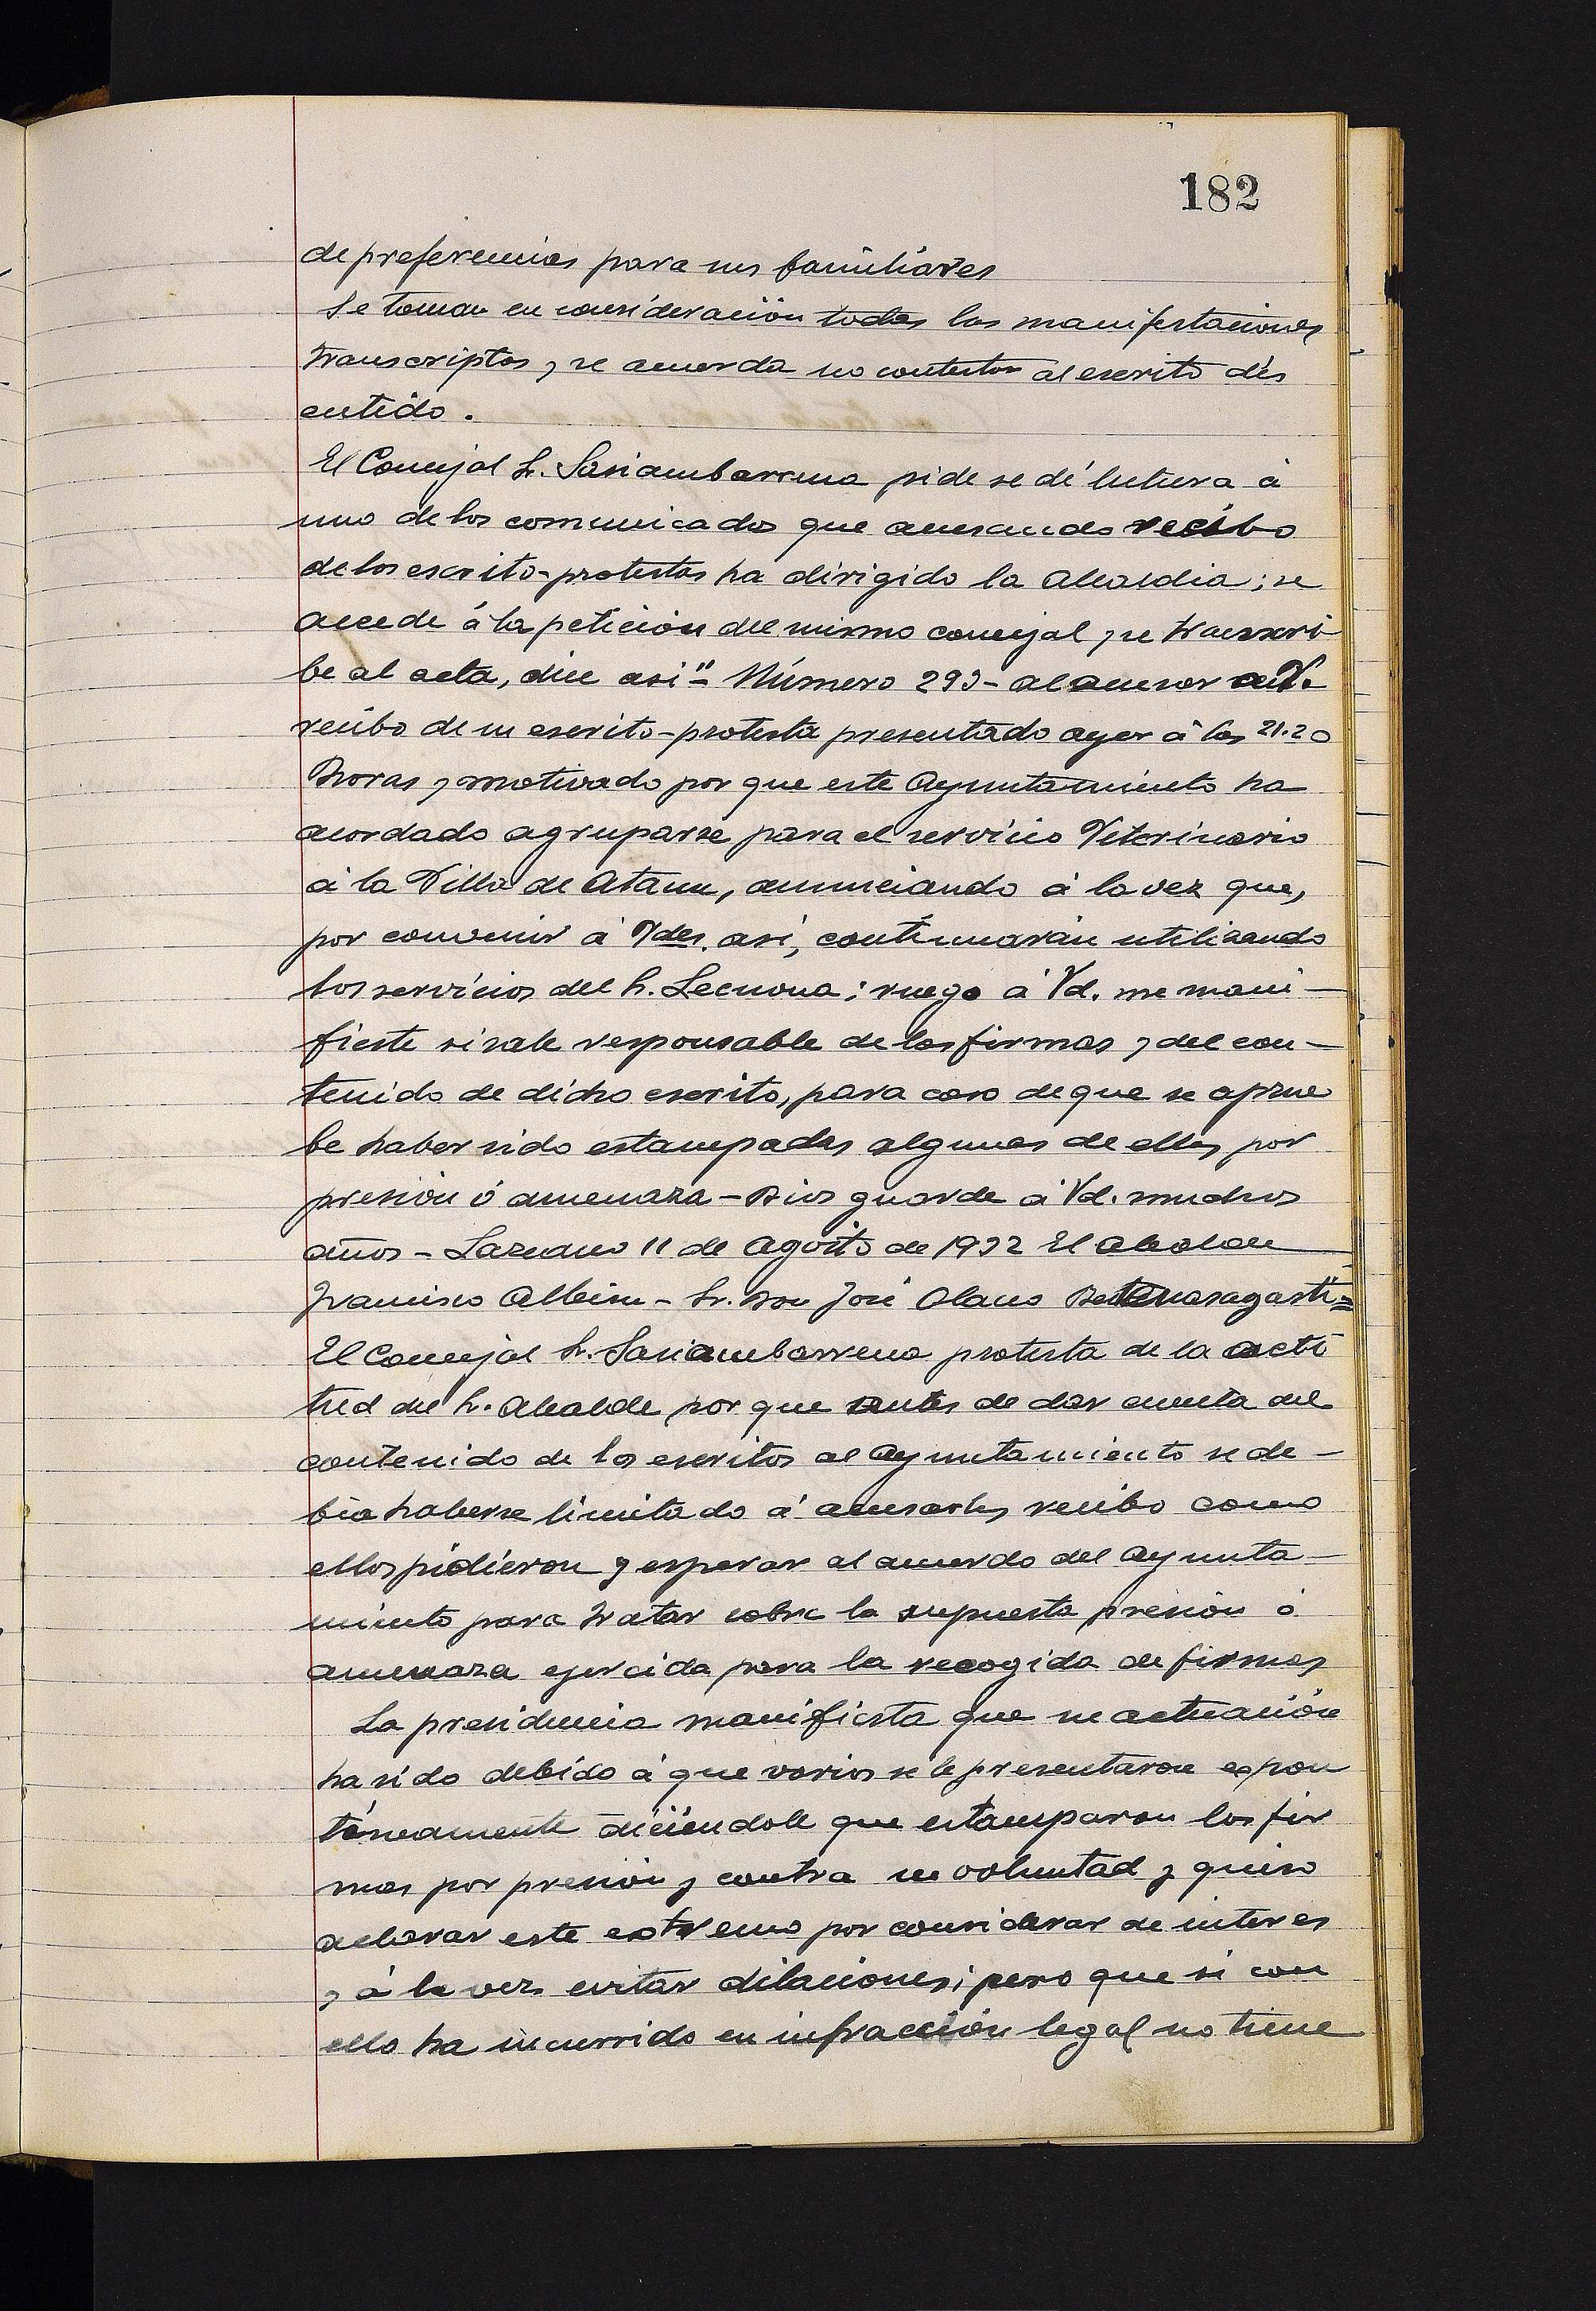 182
de preferencias para sus familiares
Se toman en consideración todas las manifestaciones
transcriptas y se acuerda no contestar al escrito dis
cutido.
El Concejal Sr. Sasiambarrena pide se dé lectura á
uno de los comunicados que acusando recibo
de los escrito-protestas ha dirigido la Alcaldia; se
accede á la petición del mismo concejal y se transcri
be al acta, dice asi "- Número 293- al acusar a V.
recibo de su escrito-protesta presentado ayer á las 21.20
horas y motivado por que este Ayuntamiento ha
acordado agruparse para el servicio Veterinario
á la Villa de Ataun, anunciando á la vez que,
por convenir á Vdes. así, continuarán utilizando
los servicios del Sr. Lecuona; ruego á Vd. me mani-
fieste si sale responsable de las firmas y del con-
tenido de dicho escrito, para caso de que se aprue
be haber sido estampadas algunas de ellas por
presión ó amenaza - Dios guarde á Vd. muchos
años - Lazcano 11 de Agosto de 1932 El Alcalde
Francisco Albisu - Sr. Don José Olano =
El Concejal Sr. Sasiambarrena protesta de la acti
tud del Sr. Alcalde por que antes de dar cuenta del
contenido de los escritos al Ayuntamiento se de-
bia haberse limitado á acusarles recibo como
ellos pidieron y esperar al acuerdo del Ayunta-
miento para tratar sobre la supuesta presión ó
amenaza ejercida para la recogida de firmas
La presidencia manifiesta que su actuación
ha sido debido á que varios se le presentaron espon
táneamente diciéndole que estamparon las fir
mas por presión y contra su voluntad y quiso
aclarar este extremo por considerar de interes
y á la vez evitar dilaciones; pero que si con
ello ha incurrido en infracción legal no tiene